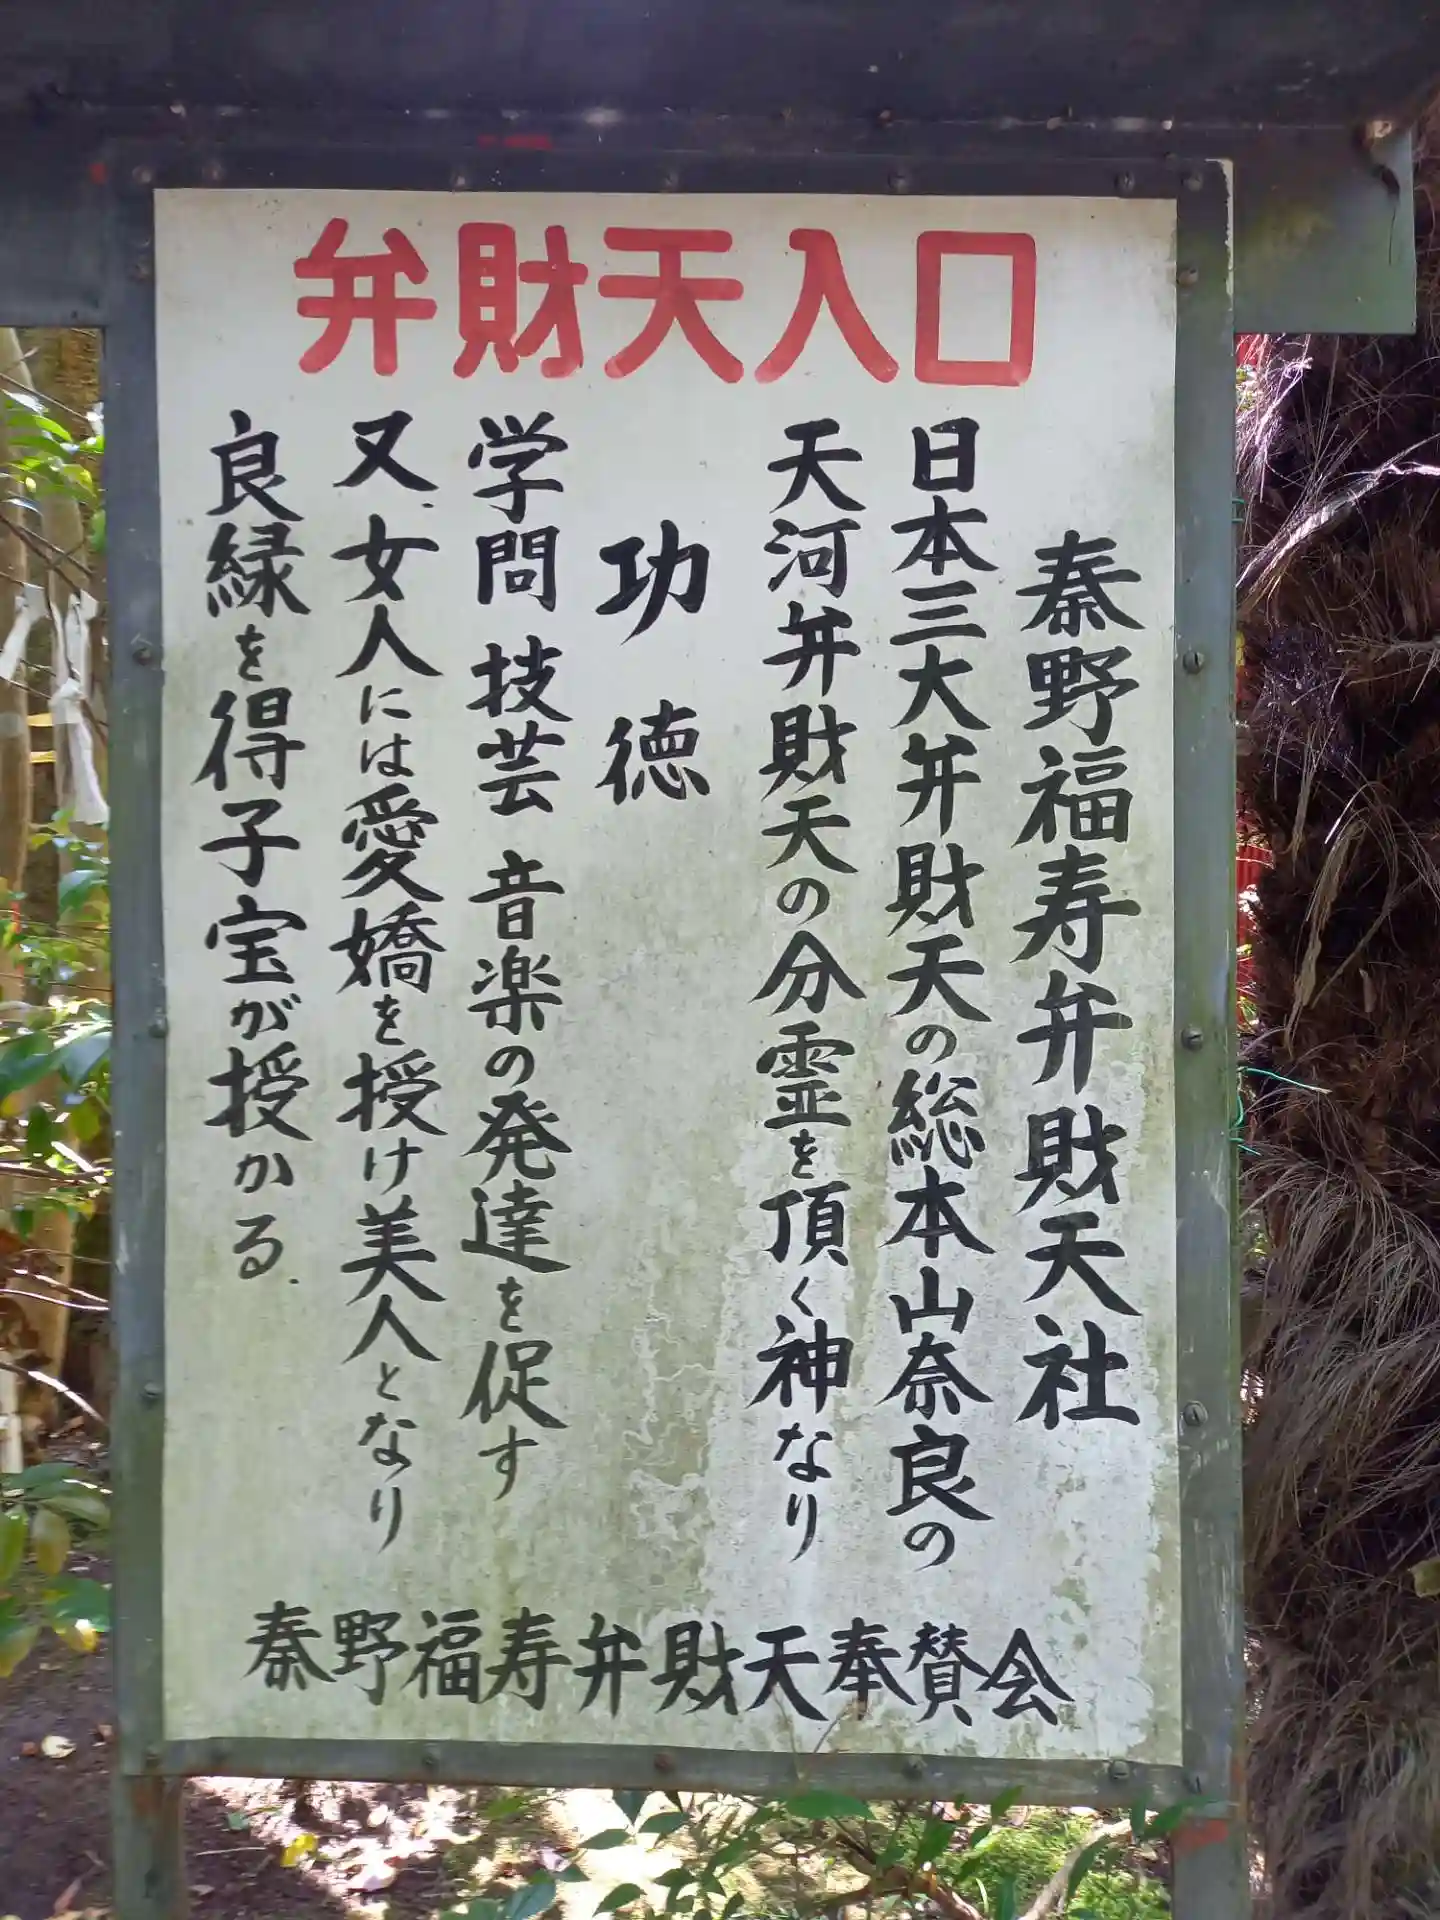 弁財天入口
秦野福寿弁財天社
日本三大弁財天の総本山奈良の
天河弁財天の分霊を頂く神なり
功徳
学問 技芸 音楽の発達を促す
又、女人には愛嬌を授け美人となり
良縁を得子宝が授かる.
秦野福寿弁財天奉賛会